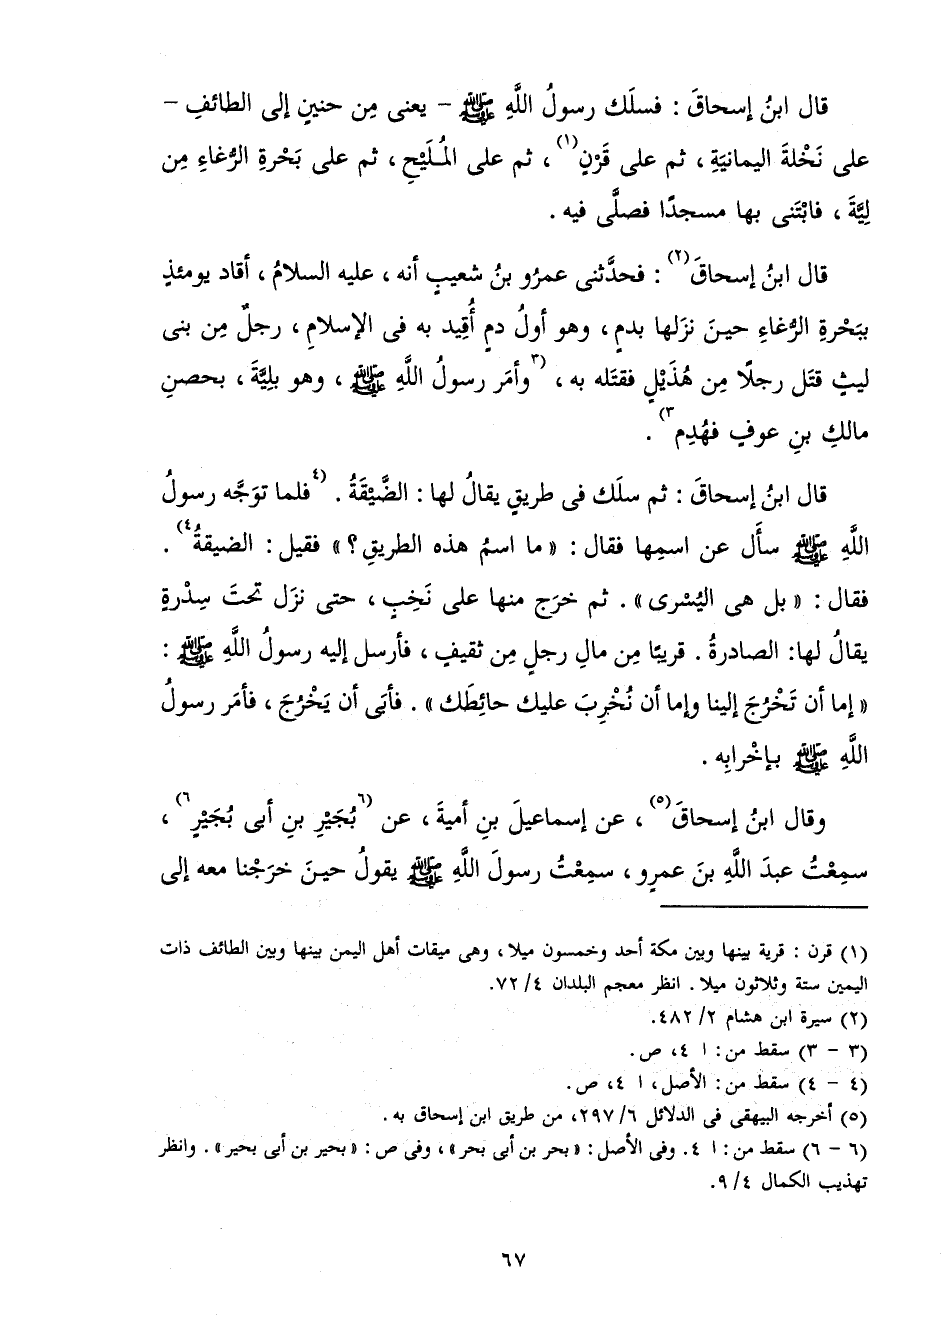 قال ابنُ إسحاقَ : فسلَك رسولُ اللَّهِ ﷺ - يعنى مِن حنينٍ إلى الطائفِ -
على نَخْلةَ اليمانيَةِ ، ثم على قَرْنٍ(١) ، ثم على المُلَيْحِ ، ثم على بَحْرةِ الرُّغاءِ مِن
لِيَّةَ ، فابْتَنى بها مسجدًا فصلَّى فيه .
قال ابنُ إسحاقَ(٢) : فحدَّثنى عمرُو بنُ شعيبٍ أنه ، عليه السلامُ ، أقاد يومئذٍ
ببَحْرةِ الرُّغاءِ حينَ نزَلها بدمٍ ، وهو أولُ دمٍ أُقِيد به فى الإسلامِ ، رجلٌ مِن بنى
ليثٍ قتَل رجلًا مِن هُذَيْلٍ فقتَله به ، (٣وأمَر رسولُ اللَّهِ ﷺ ، وهو بلِيَّةَ ، بحصنِ
مالكِ بنِ عوفٍ فهُدِم٣) .
قال ابنُ إسحاقَ : ثم سلَك فى طريقٍ يقالُ لها : الضَّيْقَةُ . (٤فلما توَجَّه رسولُ
اللَّهِ ﷺ سأَل عن اسمِها فقال : « ما اسمُ هذه الطريقِ ؟ » فقيل : الضيقةُ٤) .
فقال : « بل هى اليُسْرى » . ثم خرَج منها على نَخِبٍ ، حتى نزَل تحتَ سِدْرةٍ
يقالُ لها: الصادرةُ . قريبًا مِن مالِ رجلٍ مِن ثقيفٍ ، فأرسل إليه رسولُ اللَّهِ ﷺ :
« إما أن تَخْرُجَ إلينا وإما أن نُخْرِبَ عليك حائِطَك » . فأبَى أن يَخْرُجَ ، فأمَر رسولُ
اللَّهِ ﷺ بإخْرابِه .
وقال ابنُ إسحاقَ(٥) ، عن إسماعيلَ بنِ أميةَ ، عن (٦بُجَيْرِ بنِ أبى بُجَيْرٍ٦) ،
سمِعْتُ عبدَ اللَّهِ بنَ عمرٍو ، سمِعْتُ رسولَ اللَّهِ ﷺ يقولُ حينَ خرَجْنا معه إلى
(١) قرن : قرية بينها وبين مكة أحد وخمسون ميلا ، وهى ميقات أهل اليمن بينها وبين الطائف ذات
اليمين ستة وثلاثون ميلا . انظر معجم البلدان ٤/ ٧٢.
(٢) سيرة ابن هشام ٢/ ٤٨٢.
(٣ - ٣) سقط من : ا ٤، ص .
(٤ - ٤) سقط من : الأصل ، ا ٤، ص .
(٥) أخرجه البيهقى فى الدلائل ٦/ ٢٩٧، من طريق ابن إسحاق به .
(٦ - ٦) سقط من : ا ٤. وفى الأصل : « بحر بن أبى بحر » ، وفى ص : « بحير بن أبى بحير » . وانظر
تهذيب الكمال ٤/ ٩.
٦٧